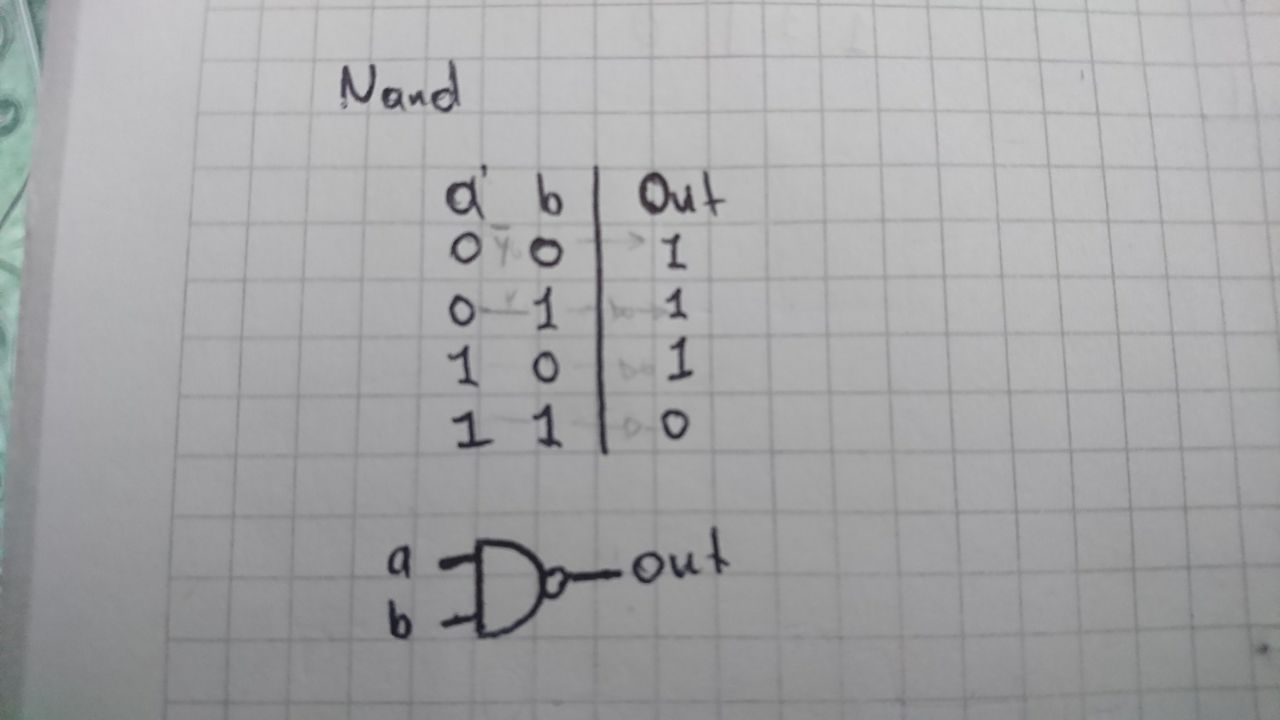 Nand
a b Out
0 0 1
0 1 1
1 0 1
1 1 0
a out
b